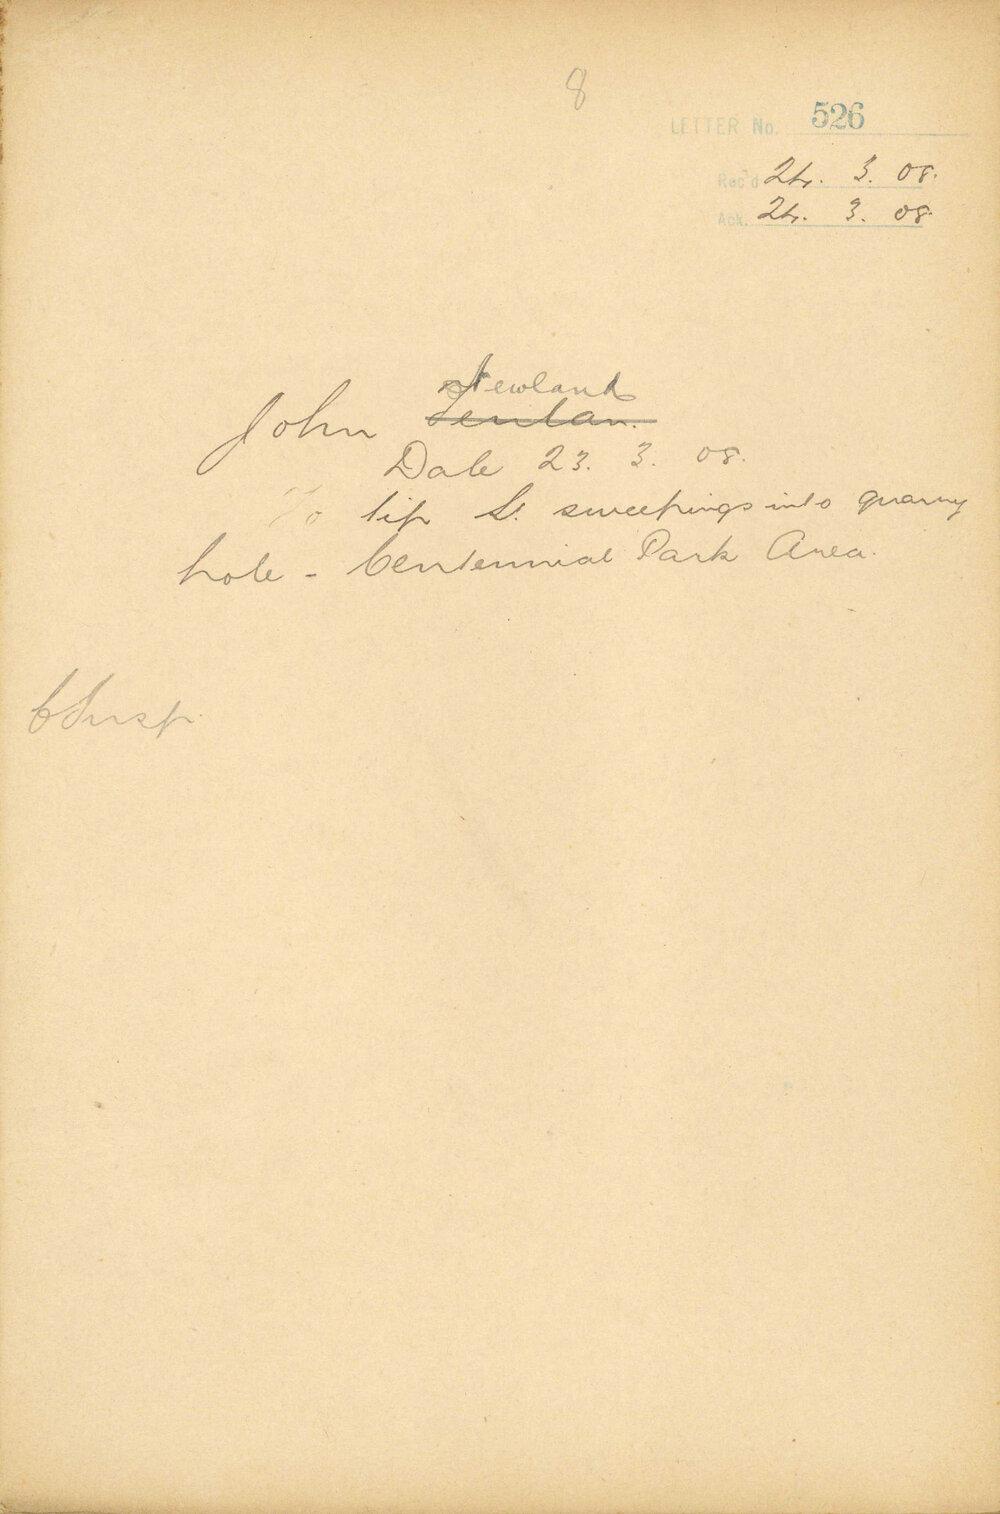 8
LETTER No. 526
Rec'd 24. 3. 08.
Ack. 24. 3. 08.
Newland
John
Date 23. 3. 08.
To tip St. sweepings into quarry
hole - Centennial Park Area.
C Insp.